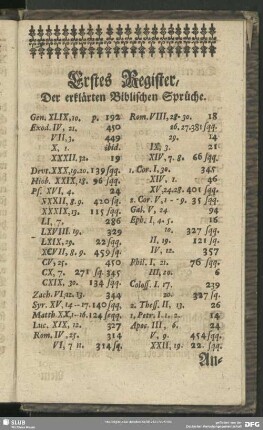 Erstes Register,
Der erklärten Biblischen Sprüche.
Gen. XLIX, 10. p. 192
Exod. IV, 21. 450
VII, 3. 449
X, 1. ibid.
XXXII, 32. 19
Devt. XXX, 19. 20. 139 sqq.
Hiob. XXXIX, 18. 96 sqq.
Ps. XVI, 4. 24
XXXII, 8. 9. 420 sq.
XXXIX, 13. 115 sqq.
LI, 7. 286
LXVIII, 19. 329
LXIX, 29. 22 sqq.
XCVII, 8. 9. 459 sq.
CV, 25. 450
CX, 7. 271 sq. 345
CXIX, 30. 134 sqq.
Zach. VI, 12. 13. 344
Syr. XV, 14-17. 140 sqq.
Matth. XX, 1-16. 124 seqq.
Luc. XIX, 12. 327
Rom. IV, 25. 314
VI, 7 11. 314 sq.
Rom. VIII, 28-30. 18
26. 27. 381 sqq.
29. 14
IX, 3. 21
XIV, 7. 8. 66 sqq.
1. Cor. I, 30. 345
XIV, 1. 46
XV, 24. 28. 401 sqq.
2. Cor. V, 1-9. 35 sqq.
Gal. V, 24. 94
Eph. I, 4. 5. 16
10. 327 sqq.
II, 19. 121 sq.
IV, 12. 357
Phil. I, 21. 76 sqq.
III, 20. 6
Coloss. I. 17. 239
20. 327 sq.
2. Thess. II, 13. 26
1. Petr. I. 1. 2. 14
Apoc. III, 6. 24
V, 9. 454 sqq.
XXII, 19. 22 sqq.
An-
SLUB
DFG